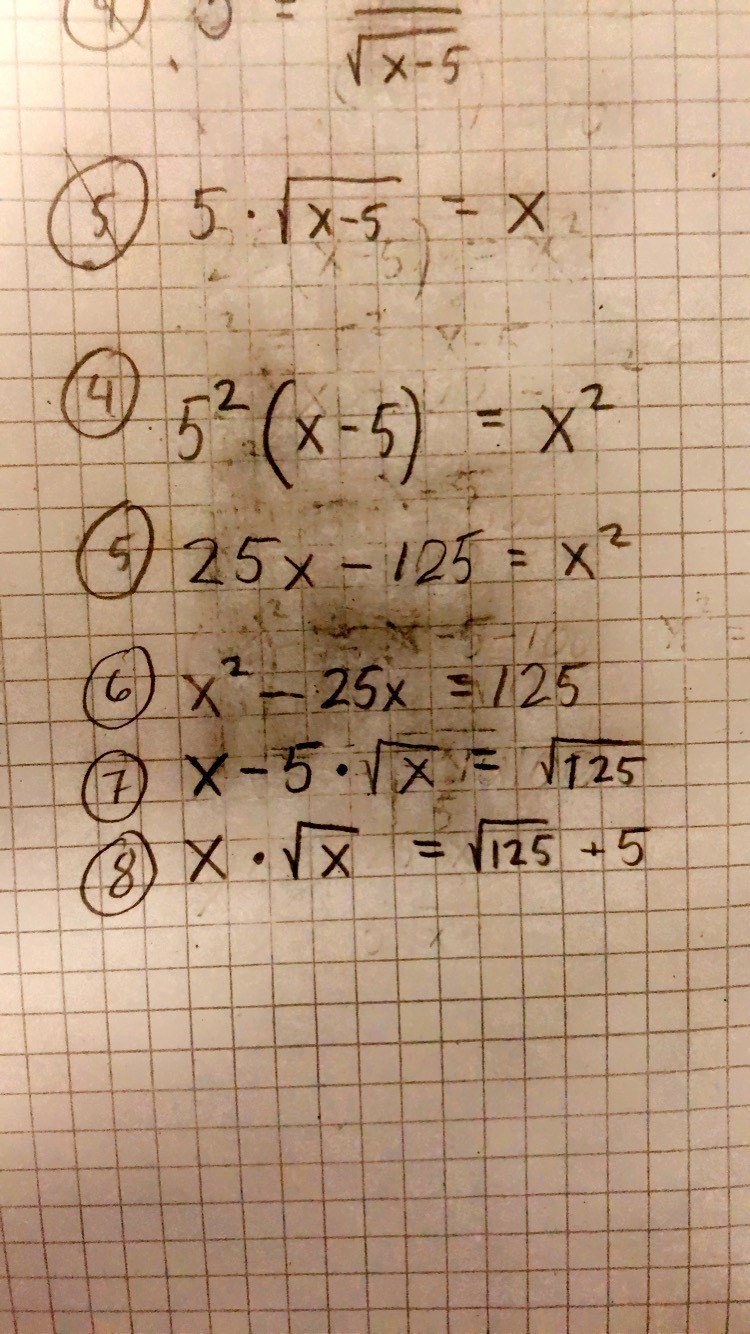 √x-5
5 5 · √x-5 = x
4 5² (x-5) = x²
5 25x - 125 = x²
6 x² - 25x = 125
7 x - 5 · √x = √125
8 x · √x = √125 + 5